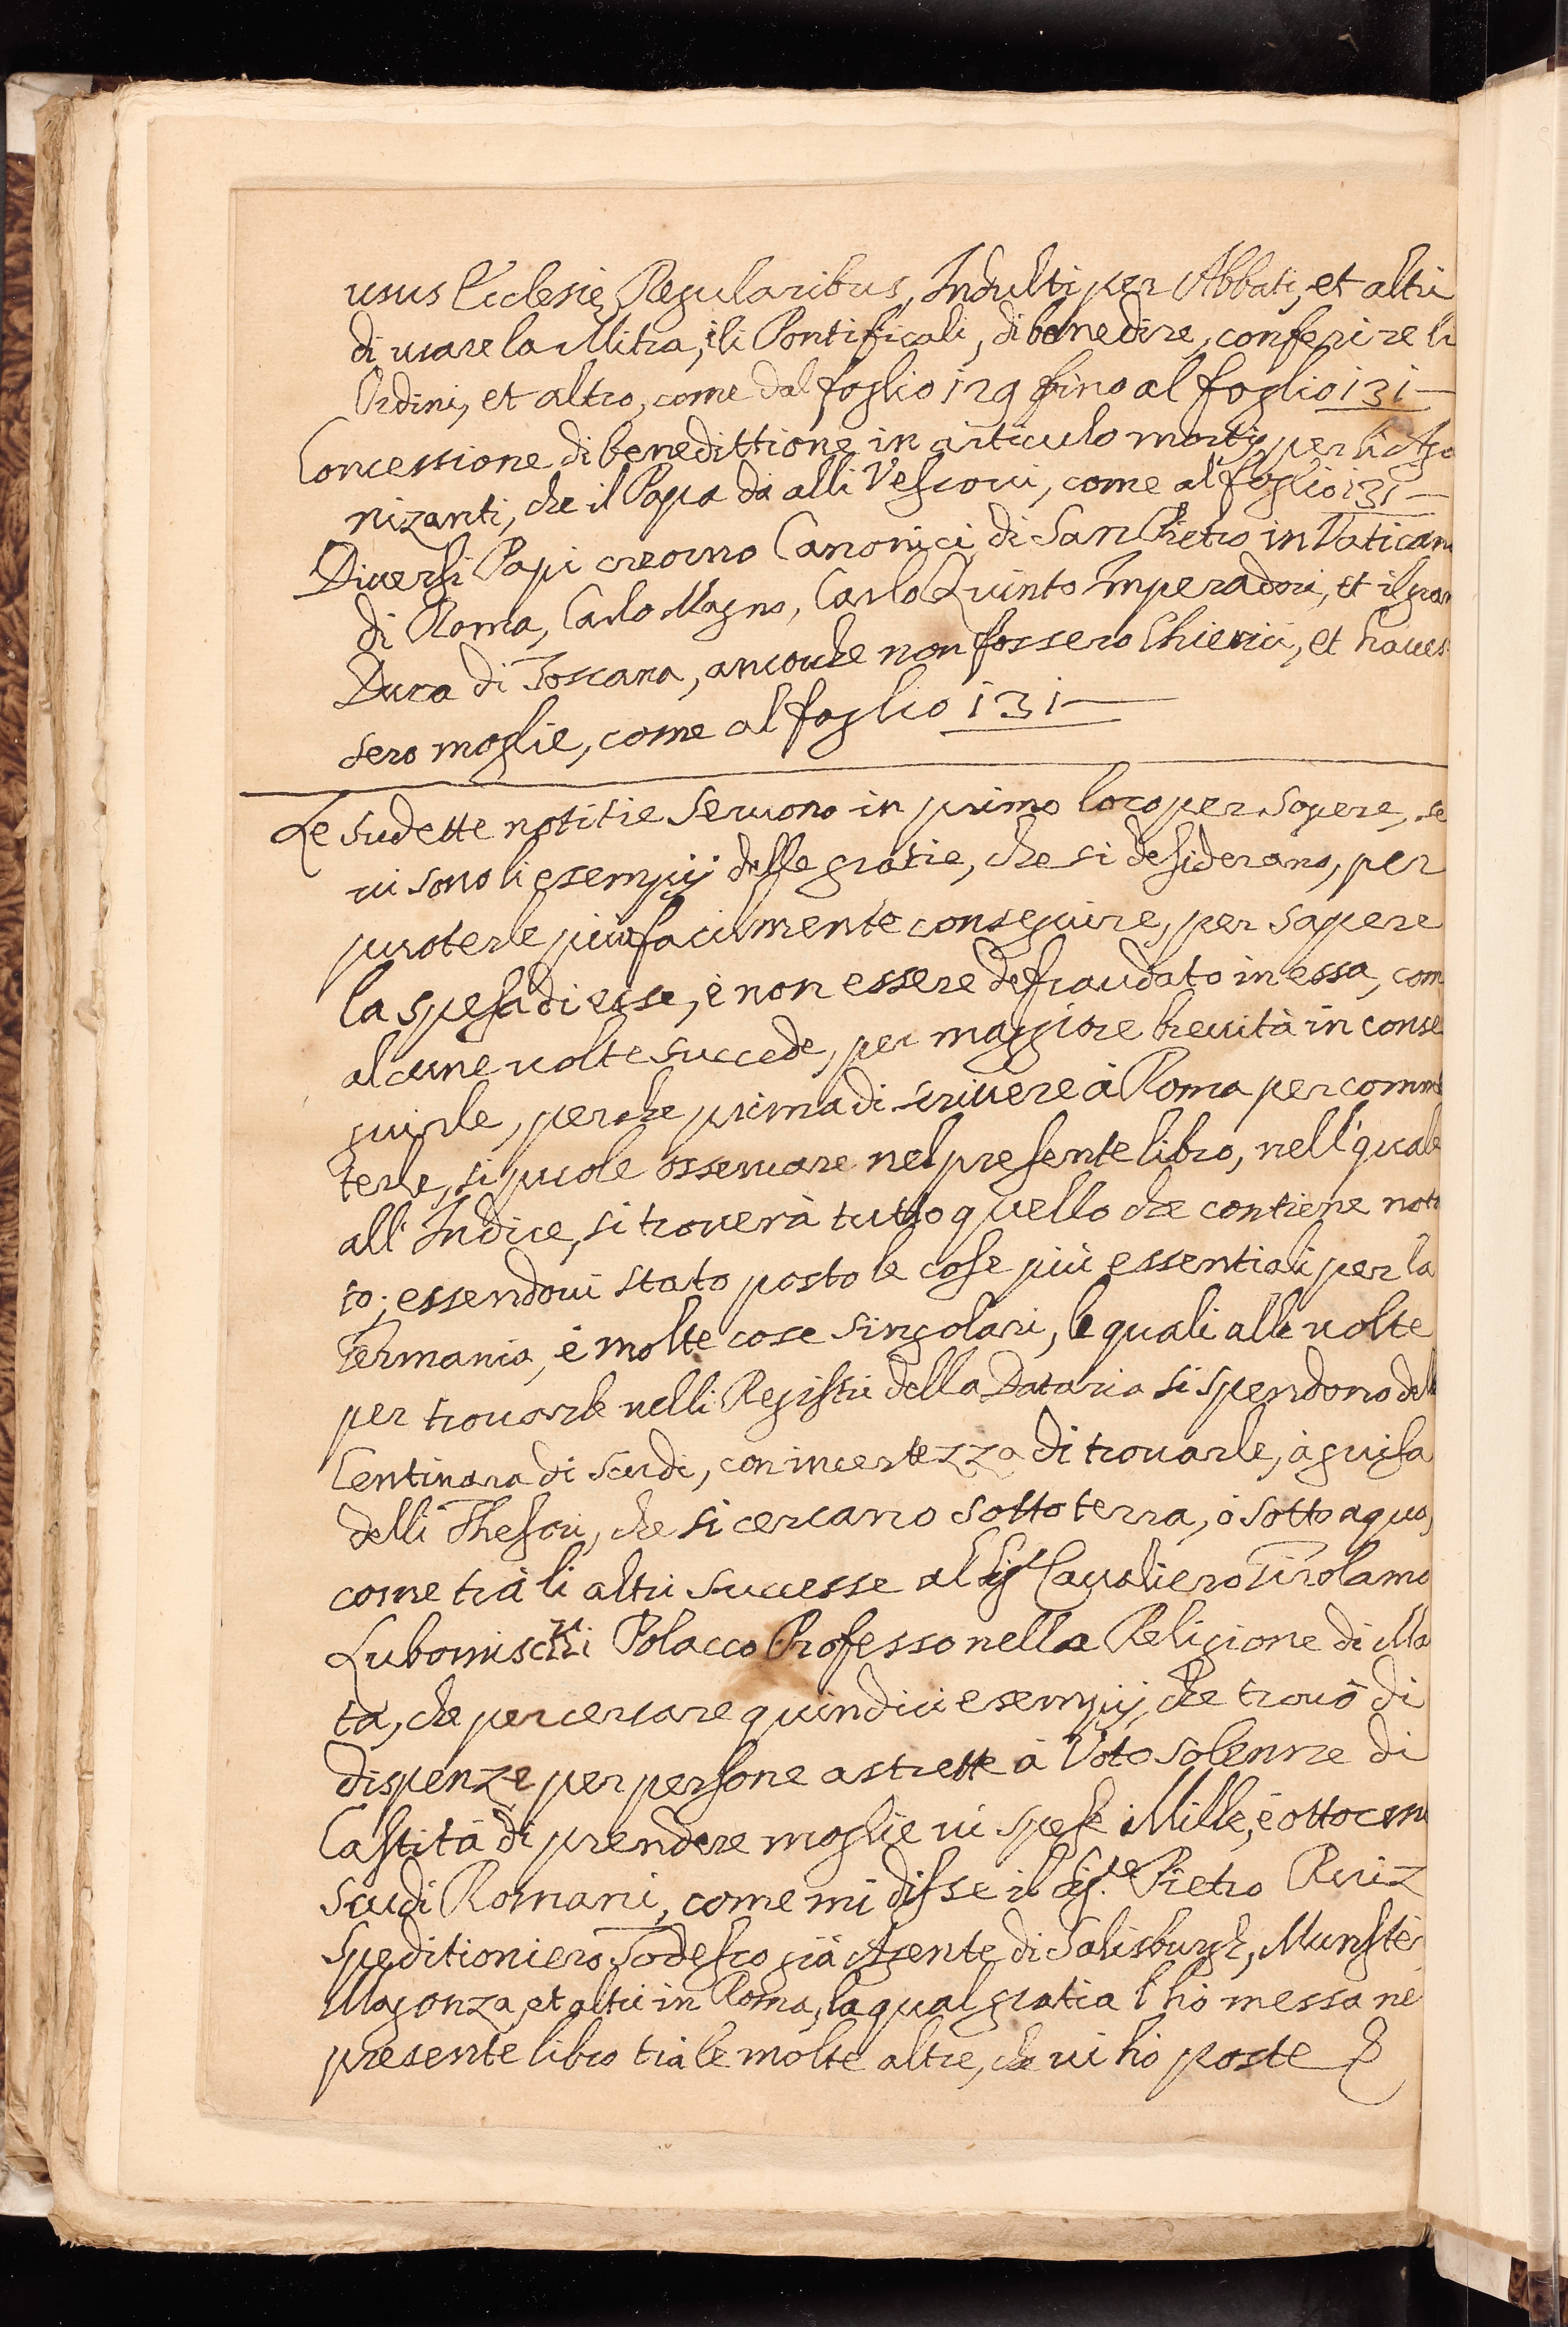 usus Ecclesię Regularibus, Indulti per Abbati, et altri
di usare la Mitra, i li Pontificali, di benedire, conferire li
Ordini, et altro, come dal foglio 129 fino al foglio 131
Concessione di benedittione in articulo mortis, per li Ago
nizanti, che il Papa dà alli Vescovi, come al foglio 131
Diversi Papi creorno Canonici di San Pietro in Vatican
di Roma, Carlo Magno, Carlo Quinto Imperadori, et il gran
Duca di Toscana, ancorche non fossero Chierici, et haves
sero moglie, come al foglio 131
Le sudette notitie servono in primo loco per sapere, se
vi sono li esempij delle gratie, che si desiderano, per
poterle più facilmente conseguire, per sapere
la spesa di esse, è non essere defraudato in essa, com
alcune volte succede, per maggiore brevità in conse
guirle, perche prima di scrivere à Roma per comme
terle, si puole osservare nel presente libro, nell' quale
all' Indice, si troverà tutto quello che contiene nota
to; essendovi stato posto le cose più essentiali per la
Germania, è molte cose singolari, le quali alle volte
per trovarle nelli Registri della Dataria si spendono delle
Centinara di Scudi, con incertezza di trovarle, à guisa
delli Thesori, che si cercano sotto terra, ò sotto aqua,
come trà li altri successe al Sig.r Cavaliero Girolamo
Polacco Professo nella Religione di Ma
ta, che per cercare quindici esempij, che trovò di
dispenze per persone astrette à Voto solenne di
Castità di prendere moglie vi spese Mille, è ottocen
scudi Romani, come mi disse il Sig.re Pietro Ruiz
Speditioniero Todesco già Agente di Salisburgh, Munster
Magonza, et altri in Roma, la qual gratia l'hò messa ne
presente libro trà le molte altre, che vi hò poste